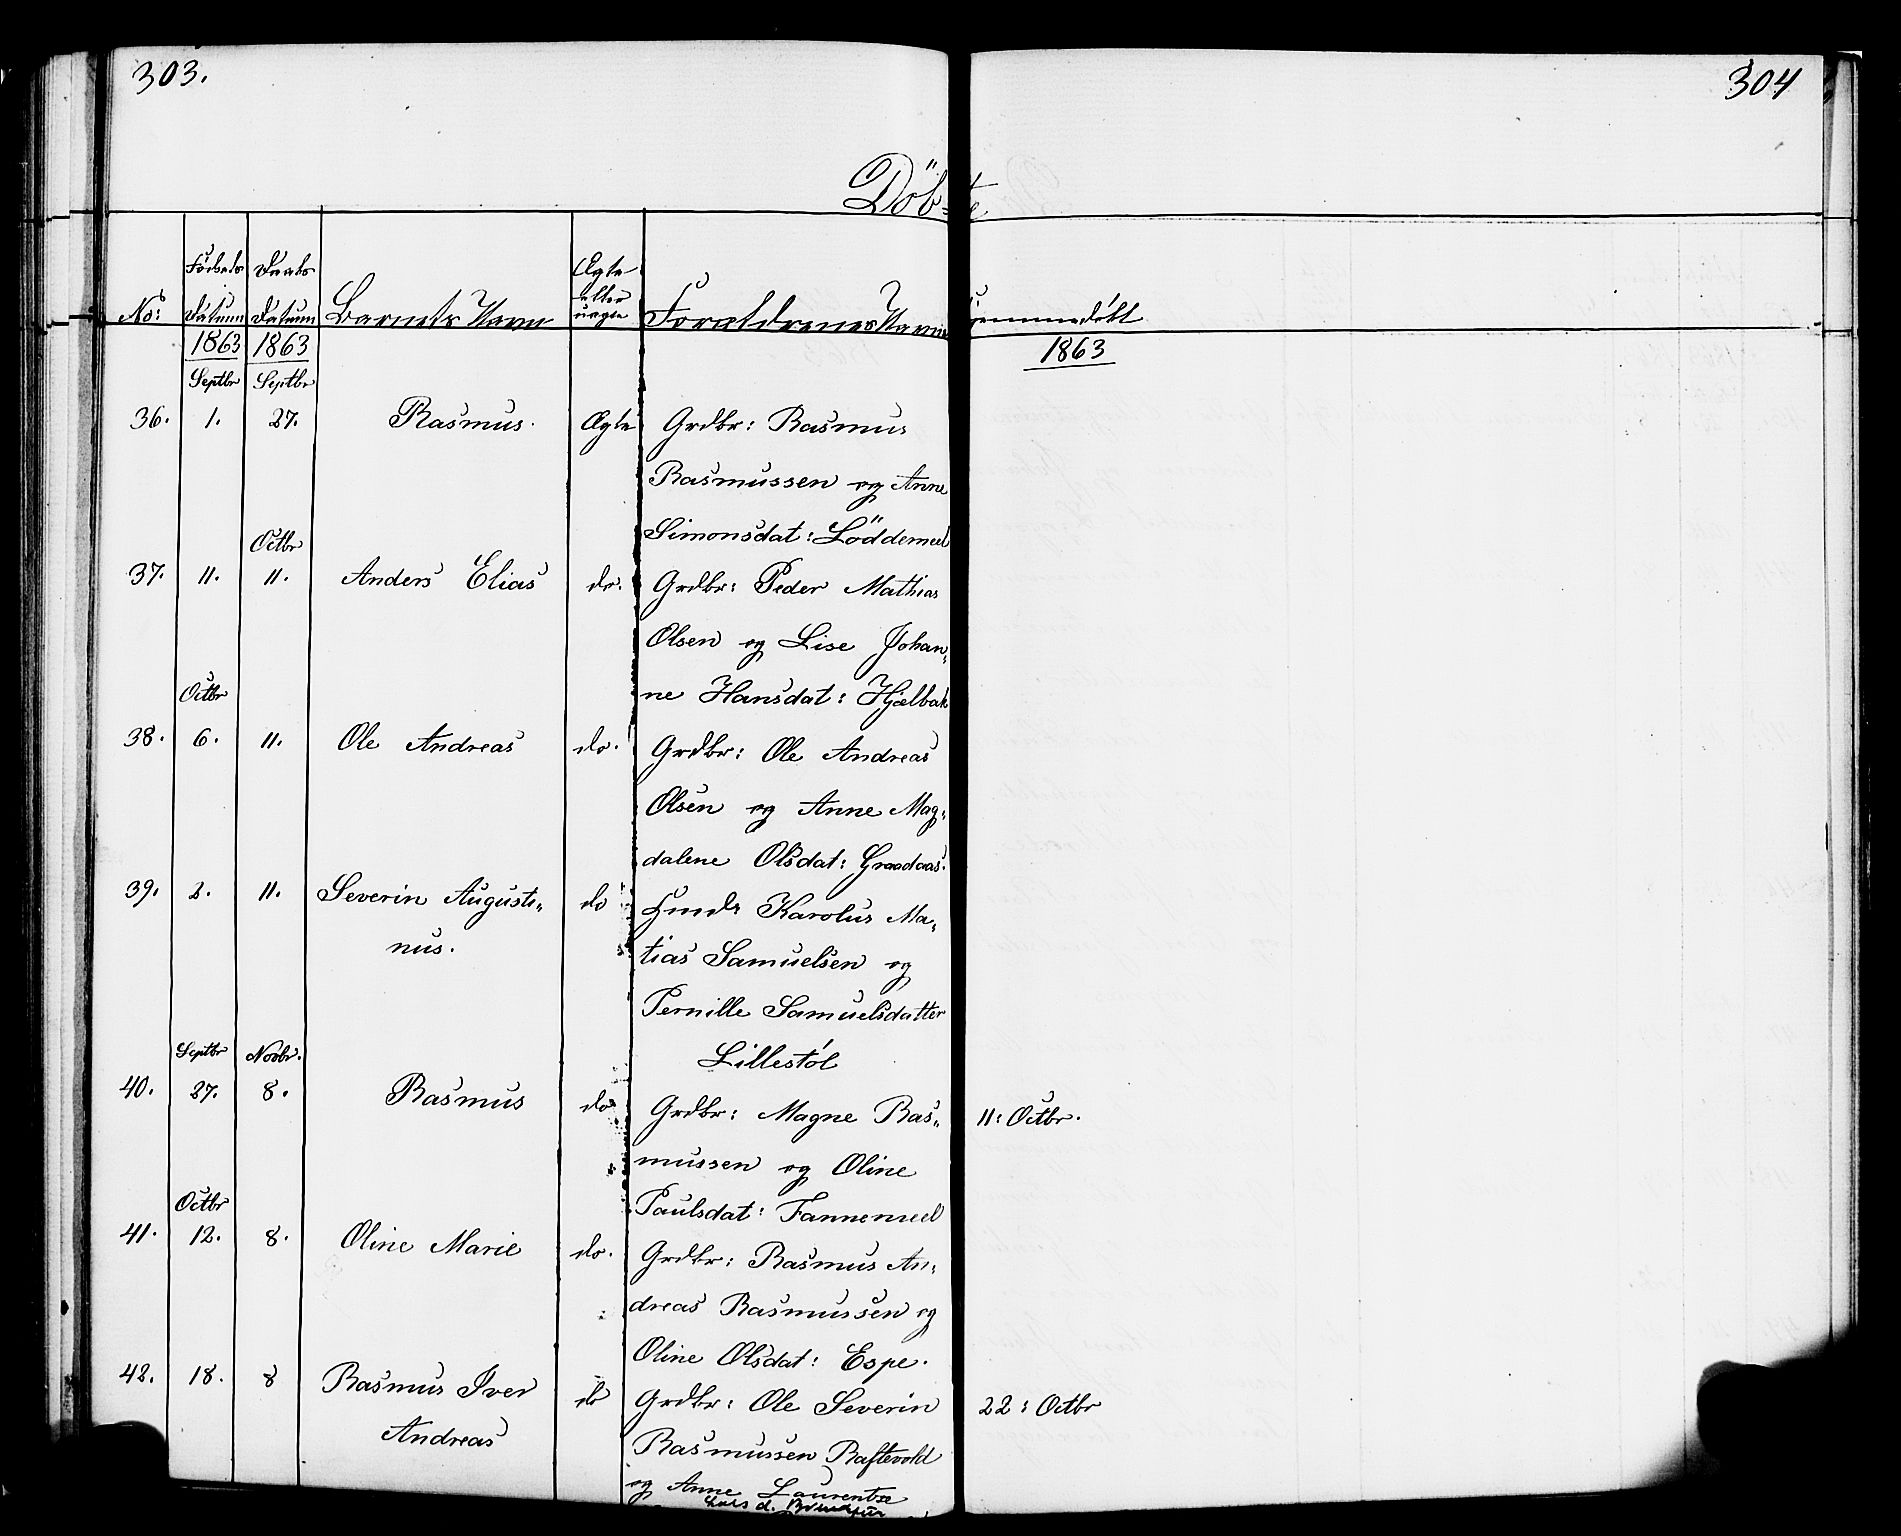 303.
304
Döbte
No:
Födsels Datum
Daabs Datum
Barnets Navn
Ægte eller uægte
Forældrenes Navne
Hjemmedöbt
1863 1863 1863
Septbr Septbr
36. 1. 27. Rasmus. Ægte Grdbr: Rasmus
Rasmussen og Anne
Simonsdat: Löddemeel
Octbr
37. 11. 11. Anders Elias do. Grdbr: Peder Mathias
Olsen og Lise Johan„
ne Hansdat: Hjelbak
Octbr
38. 6. 11. Ole Andreas do. Grdbr: Ole Andreas
Olsen og Anne Mag„
dalene Olsdat: Graadaas.
39. 2. 11. Severin Augusti„ do Karolus Ma„
nus.
tias Samuelsen og
Pernille Samuelsdatter
Lillestöl
Septbr Novbr.
40. 27. 8. Rasmus do Grdbr: Magne Ras„ 11: Octbr.
mussen og Oline
Paulsdat: Fannemeel
Octbr
41. 12. 8. Oline Marie do. Grdbr: Rasmus An„
dreas Rasmussen og
Oline Olsdat: Espe.
42. 18. 8 Rasmus Iver do Grdbr: Ole Severin 22: Octbr
Andreas
Rasmussen Raftevold
og Anne Laurentze
Lars d.